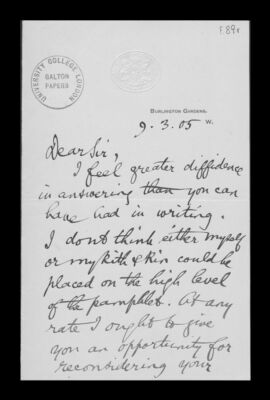 F. 89r
UNIVERSITY COLLEGE LONDON
GALTON
PAPERS
BURLINGTON GARDENS,
W.
9. 3. 05
Dear Sir,
I feel greater diffidence
in answering than you can
have had in writing.
I don't think either myself
or my kith & kin could be
placed on the high level
of the pamphlet. At any
rate I ought to give
you an opportunity for
reconsidering your